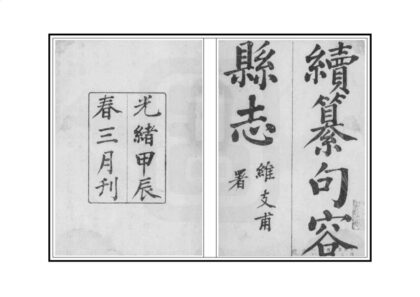 續纂句容
縣志
維支甫
署
光緒甲辰
春三月刊